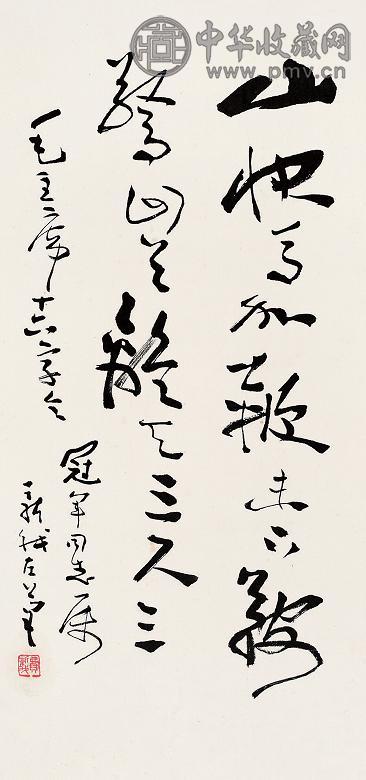 中华收藏网
www.pmv.cn
山快马加鞭未下鞍
驚回首離天三尺三
毛主席十六字令
冠军同志属
新我左笔